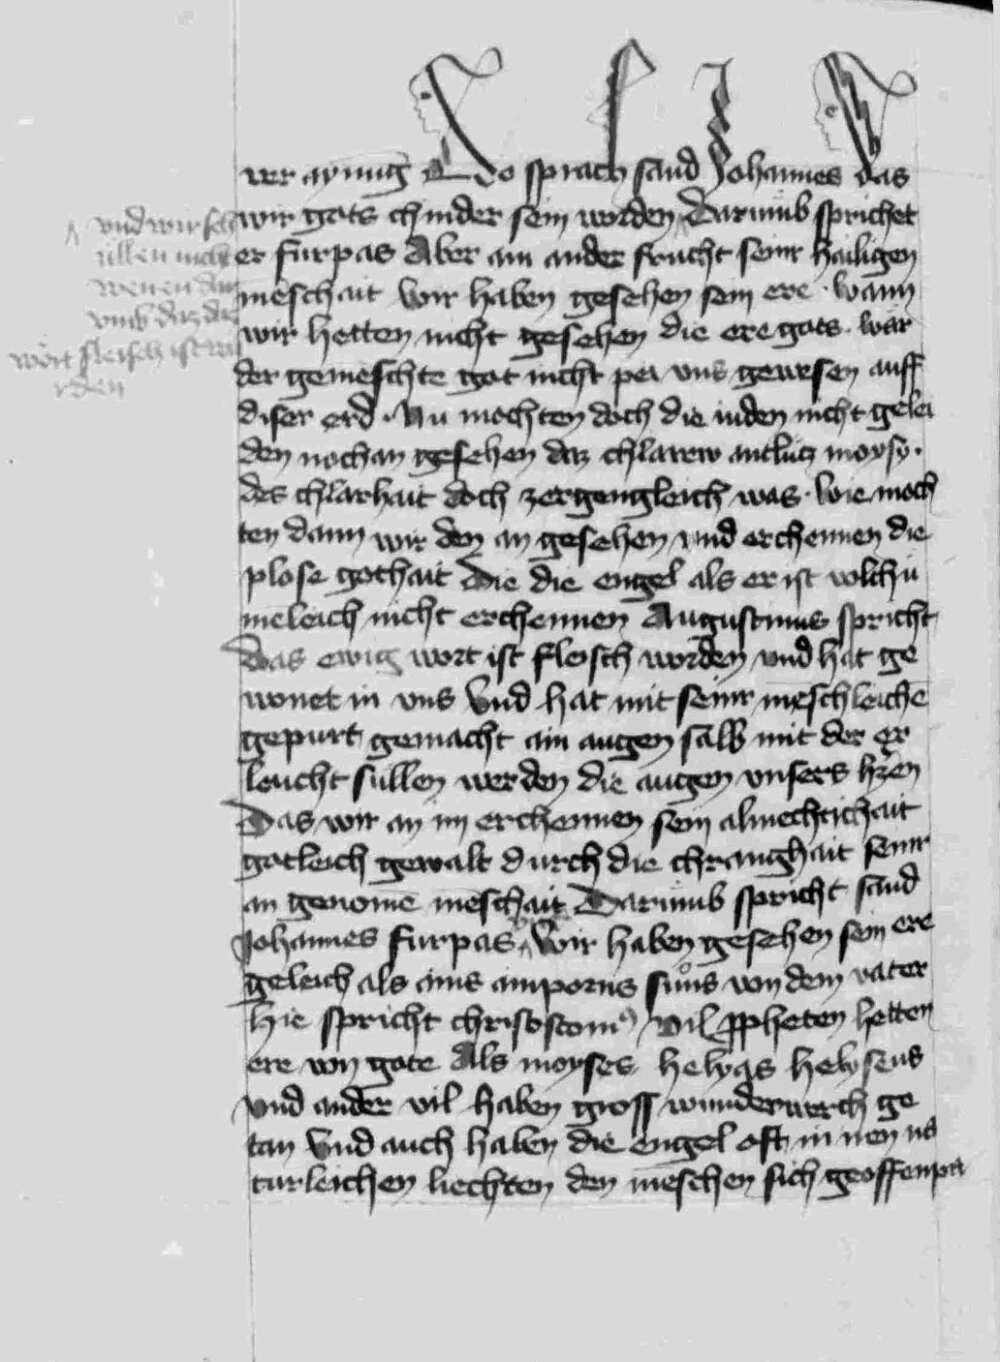 rer aynung Do sprach sand Johannes das
wir gots chinder sein worden Darumb sprichet
er furpas Aber ain ander frucht seinr hailigen
mēschait wir haben gesehen sein ere · wann
wir hetten nicht gesehen die ere gots · wār
der gemēschte got nicht pei vns gewesen auff
diser erd · Nu mochten doch die iuden nicht gelei
den noch an gesehen daz chlarew antlucz moysy ·
des chlarhait doch zergengleich was · wie moch
ten dann wir den an gesehen vnd erchennen die
plose gothait Die die engel als er ist volchū
meleich nicht erchennen Augustinus spricht
Das ewig wort ist fleisch worden vnd hat ge
wonet in vns Vnd hat mit seinr mēschleichē
gepurt gemacht ain augen salb mit der er
leucht sullen werden die augen vnsers hrczen
Das wir an im erchennen sein almechtichait
gotleich gewalt durch die chranghait seinr
an genomē mēschait Darumb spricht sand
Johannes furpas Wir haben gesehen sein ere
geleich als ains ainporns suns von dem vater
Hie spricht christostom9 Vil ꝓpheten hetten
ere von gote Als moyses helyas helyseus
vnd ander vil haben gross wunderwerch ge
tan Vnd auch haben die engel oft in iren na
turleichen liechten den mēschen sich geoffenpa
vnd wir sch
ullen nicht
vmb daz daz
wort fleisch ist wo
rden